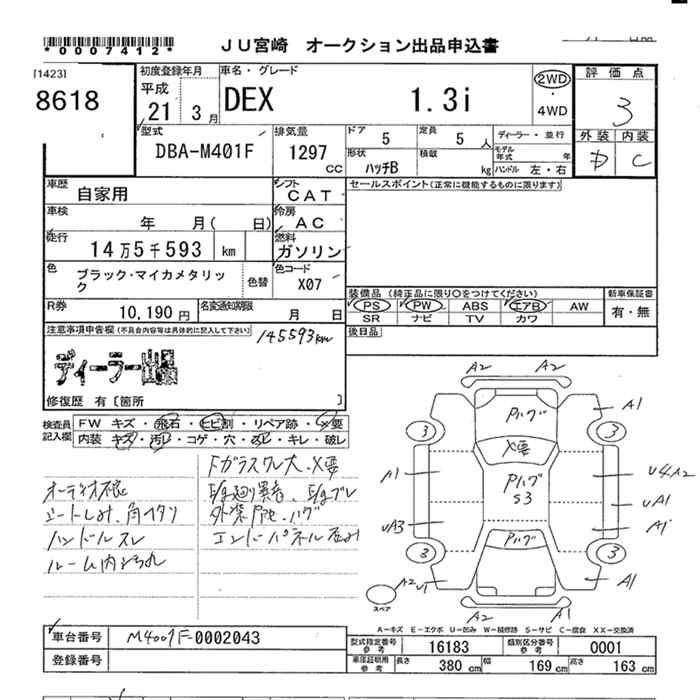 *0007412*
JU宮崎 オークション出品申込書
[1423]
8618
初度登録年月
平成
21 3月
車名・グレード
DEX 1.3i
2WD
・
4WD
評価点
3
外装 内装
D C
型式
DBA-M401F
排気量
1297
CC
ドア 5
定員 5 人
ディーラー・並行
形状
ハッチB
積載 kg
モデル年式 年
ハンドル 左・右
車歴
自家用
シフト
CAT
セールスポイント(正常に機能するものに限ります)
車検
年 月( 日)
冷房
AC
走行
14万5千593 km
燃料
ガソリン
色
ブラック・マイカメタリック
色替
色コード
X07
装備品 (純正品に限り○をつけてください)
新車保証書
PS PW ABS エアB AW
有・無
SR ナビ TV カワ
R券
10,190円
名変通知期限
月 日
後日品
注意事項申告欄(不具合内容等は具体的に記入して下さい)
145593km
ディーラー出品
修復歴 有〔箇所 〕
検査員記入欄
FW キズ・飛石・ヒビ割・リペア跡・×要
内装 キズ・汚レ・コゲ・穴・スレ・キレ・破レ
Fガラスワレ大・X要
オーディオ欠品
ハンドルスレ
ルーム内汚れ
A2 A2
Pハゲ
A1
3 3
X要
A1
Pハゲ
S3
U4A2
UA1
UA3
A1
Pハゲ
3 3
A2U1
A1
スペア
A2 A1
A−キズ E−エクボ U−凹み W−補修跡 S−サビ C−腐食 XX−交換済
車台番号
M401F-0002043
登録番号
型式指定番号参考
16183
類別区分番号参考
0001
車庫証明用参考
長さ 380 cm
幅 169 cm
高さ 163 cm